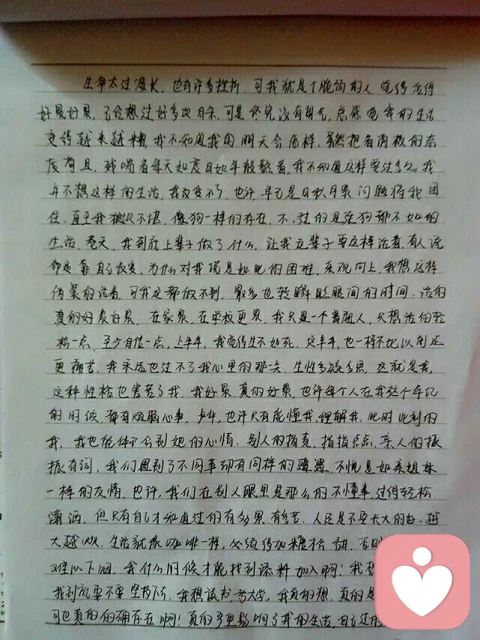 生命太过漫长，也有许多挫折，可我就是个脆弱的人，觉得活得
好累好累，已经想过好多次自杀，可是终究没有勇气，总感觉我的生活
变得越来越糟，我不知道我的明天会怎样，虽然抱着消极的态
度苟且，残喘着每天如度日如年般熬着，我不知道这样要过多久，我
并不想这样的生活，我改变不了，也许早已是日积月累问题将我困
住，直至我狼狈不堪，像狗一样的存在，不，过的是连狗都不如的
生活，苍天，我到底上辈子做了什么，让我这辈子要这样活着，有人说
命运靠自己改变，为什么对我竟是如此的困难，乐观向上，我想这样
伪装的活着，可我这都做不到，最多也就瞬眨眼间的时间，活的
真的好累好累，在家累，在学校更累，我只是一个普通人，只想活的轻
松一点，至少自信一点，上半年，我觉得生不如死，这半年，也一样不比以前
更痛苦，我永远也过不了我心里的那一次，生性多疑多虑，这就是我，
这种性格也害苦了我，我好累，真的好累，也许每个人在我这个年纪
的时候都有烦恼心事，卢华，也许只有她懂我，理解我，此时此刻的
我，我也能体会到她的心情，别人的指责，指指点点，亲人的振
振有词，我们遇到了不同事却有同样的遭遇，不愧是如亲姐妹
一样的友情，也许，我们在别人眼里是那么的不懂事，过得轻松
潇洒，但只有自己才知道过的有多累有多苦，人还是不要长大的好，越
大越烦，生活就像咖啡一样，必须得加糖才甜，否则
难以下咽，我什么时候才能找到添料加入啊！我
我到底要不要坚持下去，我想读书，考大学，我真的想，真的是
可也真的的确存在啊！真的多里影响了我的生活，自己的